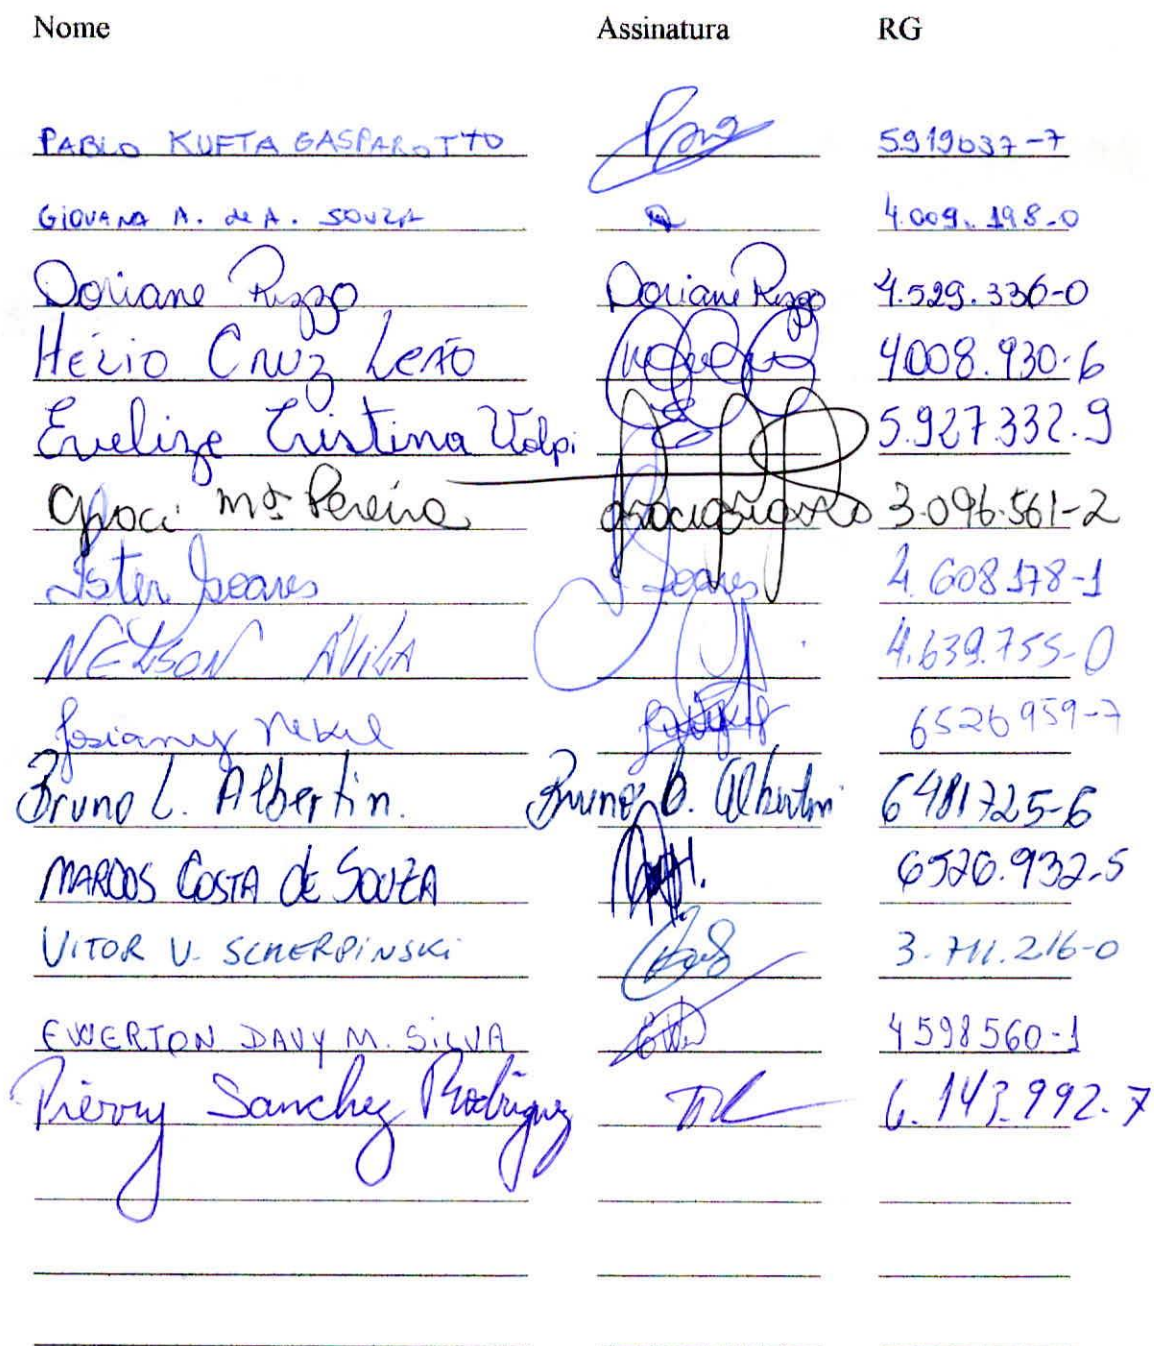 Nome Assinatura RG
PABLO KUFTA GASPAROTTO 5919637-7
GIOVANA A. de A. SOUZA 4.009.198-0
Doriane Rizzo Doriane Rizzo 4.529.336-0
HÉLIO CRUZ LEÃO 4008.930-6
Evelize Cristina Volpi 5.927.332.9
Mª Pereira 3.096.561-2
Ester Soares Soares 4.608.178-1
NELSON ÁVILA 4.639.755-0
Josiany 6526959-7
Bruno L. Albertin. Bruno L. Albertin 6481725-6
MARCOS COSTA DE SOUZA 6526.932-5
VITOR V. SCHERPINSKi 3.711.216-0
EWERTON DAVY M. SILVA 4598560-1
Pierry Sanchez Rodriguez 6.143.992-7